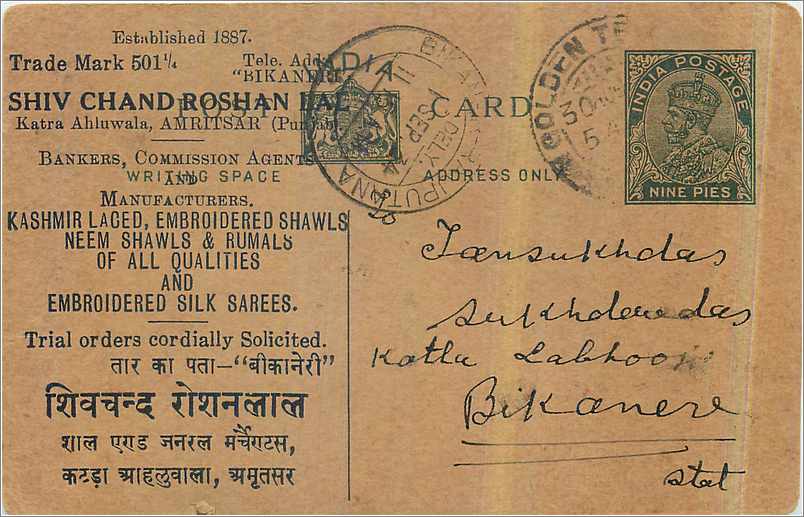 Established 1887.
Trade Mark 501¼ Tele. Add.
"BIKANERI"
SHIV CHAND ROSHAN LAL
Katra Ahluwala, AMRITSAR (Punjab)
BANKERS, COMMISSION AGENTS
AND
MANUFACTURERS.
KASHMIR LACED, EMBROIDERED SHAWLS
NEEM SHAWLS & RUMALS
OF ALL QUALITIES
AND
EMBROIDERED SILK SAREES.
Trial orders cordially Solicited.
तार का पता-"बीकानेरी"
शिवचन्द रोशनलाल
शाल एण्ड जनरल मर्चेण्टस,
कटड़ा आहलुवाला, अमृतसर
INDIA
POST CARD
WRITING SPACE
ADDRESS ONLY
BIKANER RAJPUTANA
DELY.
11
1 SEP
GOLDEN TE
30
54
INDIA POSTAGE
NINE PIES
To
Jansukhdas
Sukhdevdas
Katla Labhooji
Bikanere
stat